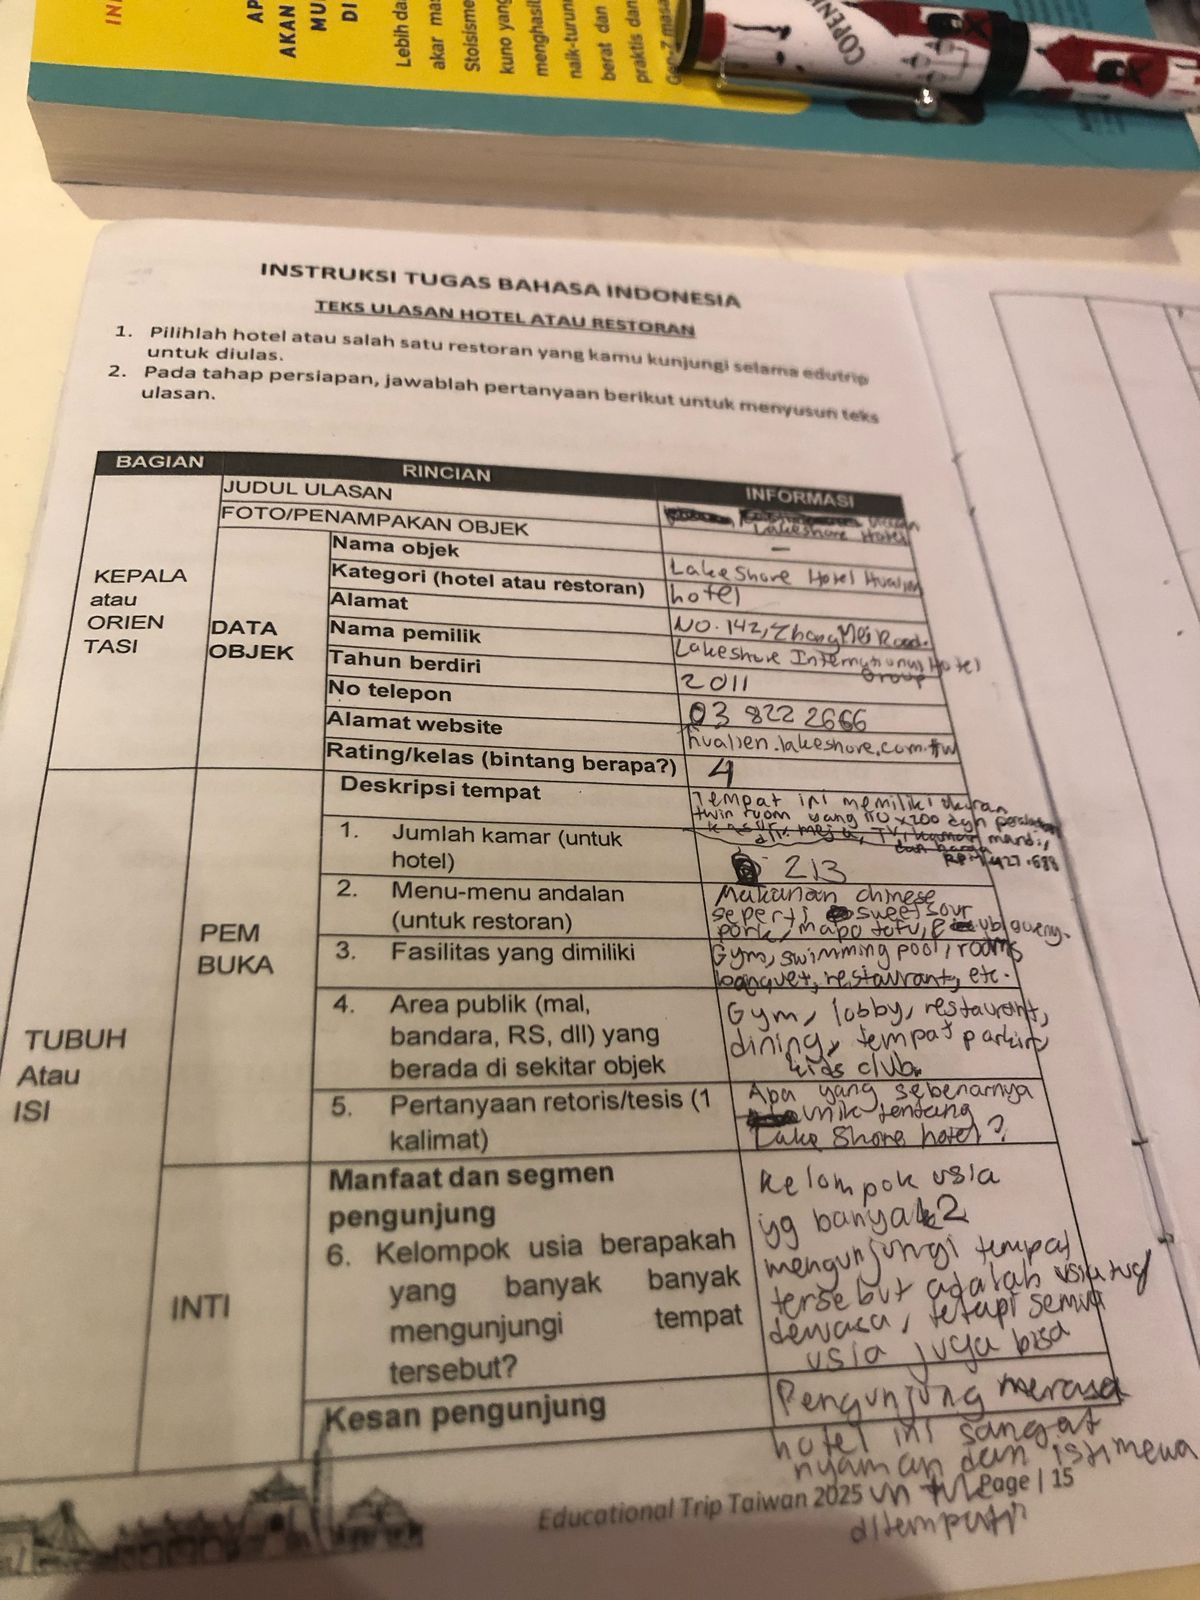 IN
AP
AKAN
MU
DI
Lebih da
akar ma
Stoisisme
kuno yang
menghasil
naik-turun
berat dan
praktis dan
Gen-Z masa
COPEN
INSTRUKSI TUGAS BAHASA INDONESIA
TEKS ULASAN HOTEL ATAU RESTORAN
1. Pilihlah hotel atau salah satu restoran yang kamu kunjungi selama edutrip
untuk diulas.
2. Pada tahap persiapan, jawablah pertanyaan berikut untuk menyusun teks
ulasan.
BAGIAN RINCIAN INFORMASI
KEPALA
atau
ORIEN
TASI
JUDUL ULASAN
Lakeshore Hotel
FOTO/PENAMPAKAN OBJEK
-
DATA
OBJEK
Nama objek
Lakeshore Hotel Hualien
Kategori (hotel atau restoran)
hotel
Alamat
NO. 142, Zhong Mei Road.
Nama pemilik
Lakeshore International Hotel
Group
Tahun berdiri
2011
No telepon
03 822 2666
Alamat website
hualien.lakeshore.com.tw
Rating/kelas (bintang berapa?)
4
TUBUH
Atau
ISI
PEM
BUKA
Deskripsi tempat
Tempat ini memiliki ukuran
twin room yang 110 x 200 dgn
meja, TV, kamar mandi,
dan harga
Rp. 1.427.688
1. Jumlah kamar (untuk
hotel)
213
2. Menu-menu andalan
(untuk restoran)
Makanan chinese
seperti sweet sour
pork, mapo tofu,
3. Fasilitas yang dimiliki
Gym, swimming pool, rooms
banquet, restaurant, etc.
4. Area publik (mal,
bandara, RS, dll) yang
berada di sekitar objek
Gym, lobby, restaurant,
dining, tempat parkir,
kids club.
5. Pertanyaan retoris/tesis (1
kalimat)
Apa yang sebenarnya
unik tentang
Lake Shore hotel?
INTI
Manfaat dan segmen
pengunjung
6. Kelompok usia berapakah
yang banyak banyak
mengunjungi tempat
tersebut?
Kelompok usia
yg banyak2
mengunjungi tempat
tersebut adalah usia
dewasa, tetapi semua
usia juga bisa
Kesan pengunjung
Pengunjung merasa
hotel ini sangat
nyaman dan istimewa
untuk
ditempati
Educational Trip Taiwan 2025
Page | 15